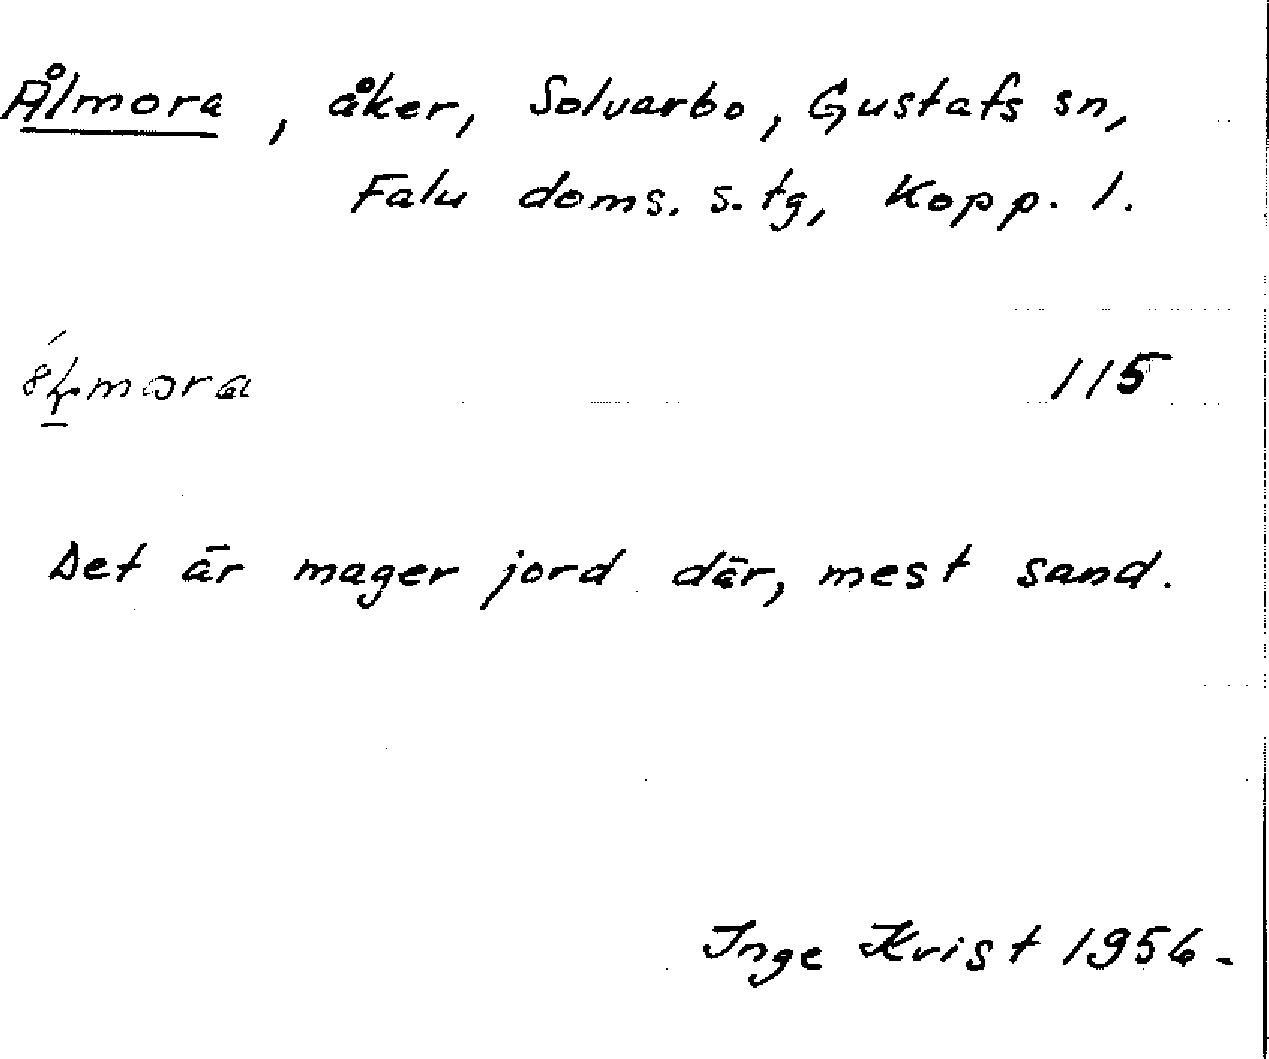 Ålmora, åker, Solvarbo, Gustafs sn,
Falu doms. s. tg, Kopp. l.
115
Det är mager jord där, mest sand.
Inge Kvist 1956-